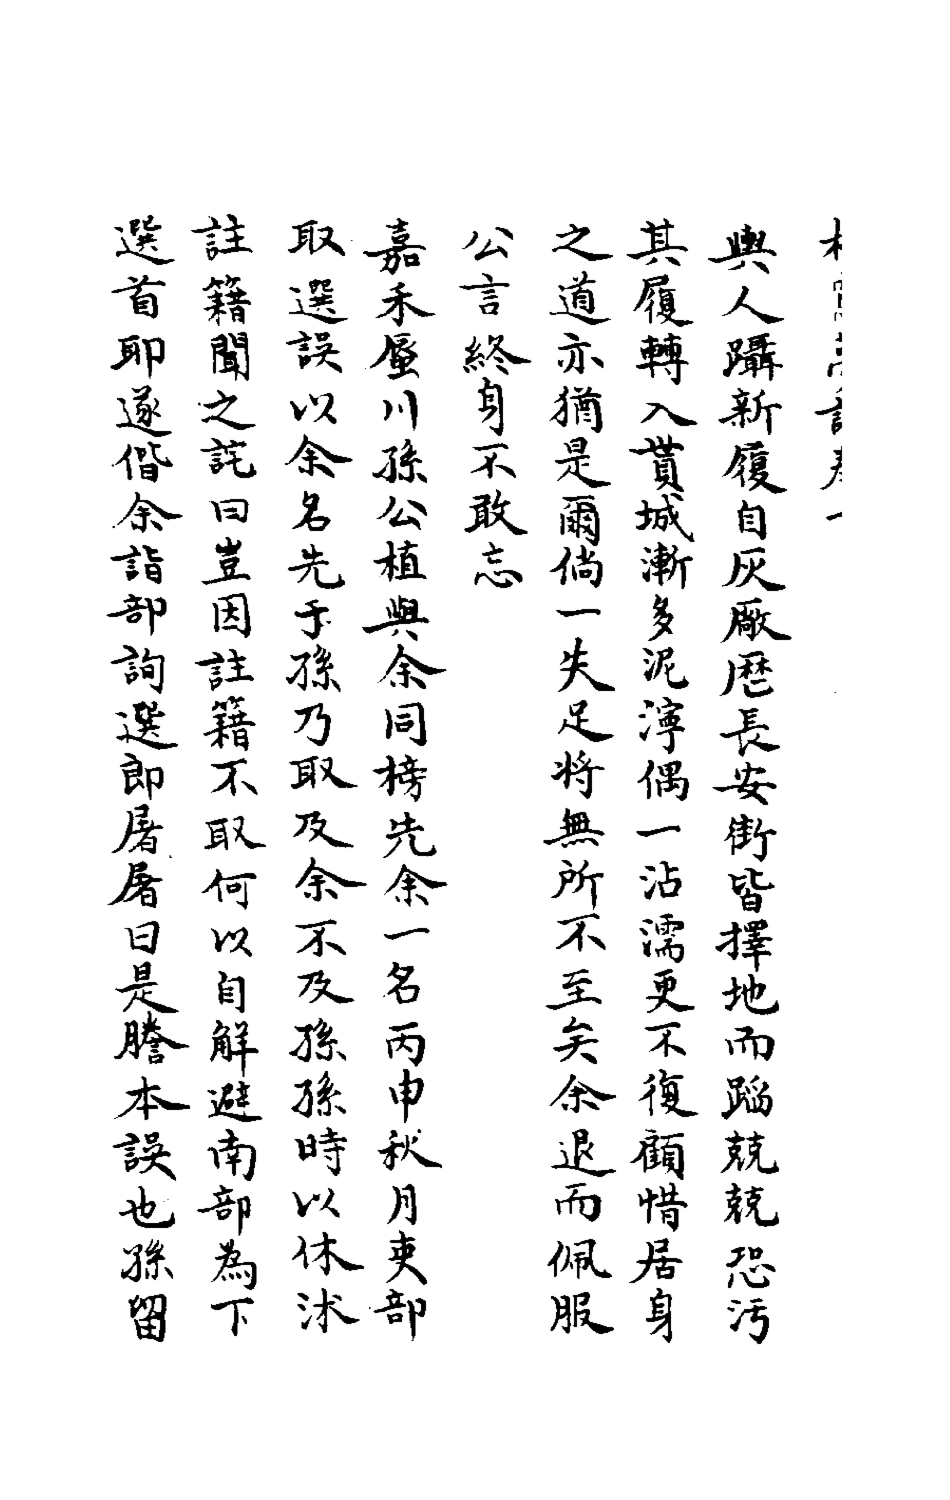 松窗夢語卷一
輿人躡新履自灰厰歷長安街皆擇地而蹈兢兢恐污
其履轉入貰城漸多泥濘偶一沾濡更不復顧惜居身
之道亦猶是爾倘一失足將無所不至矣余退而佩服
公言終身不敢忘
嘉禾蜃川孫公植與余同榜先余一名丙申秋月吏部
取選誤以余名先于孫乃取及余不及孫孫時以休沐
註籍聞之詫曰豈因註籍不取何以自解避南部為下
選首耶遂偕余詣部詢選郎屠屠曰是謄本誤也孫留